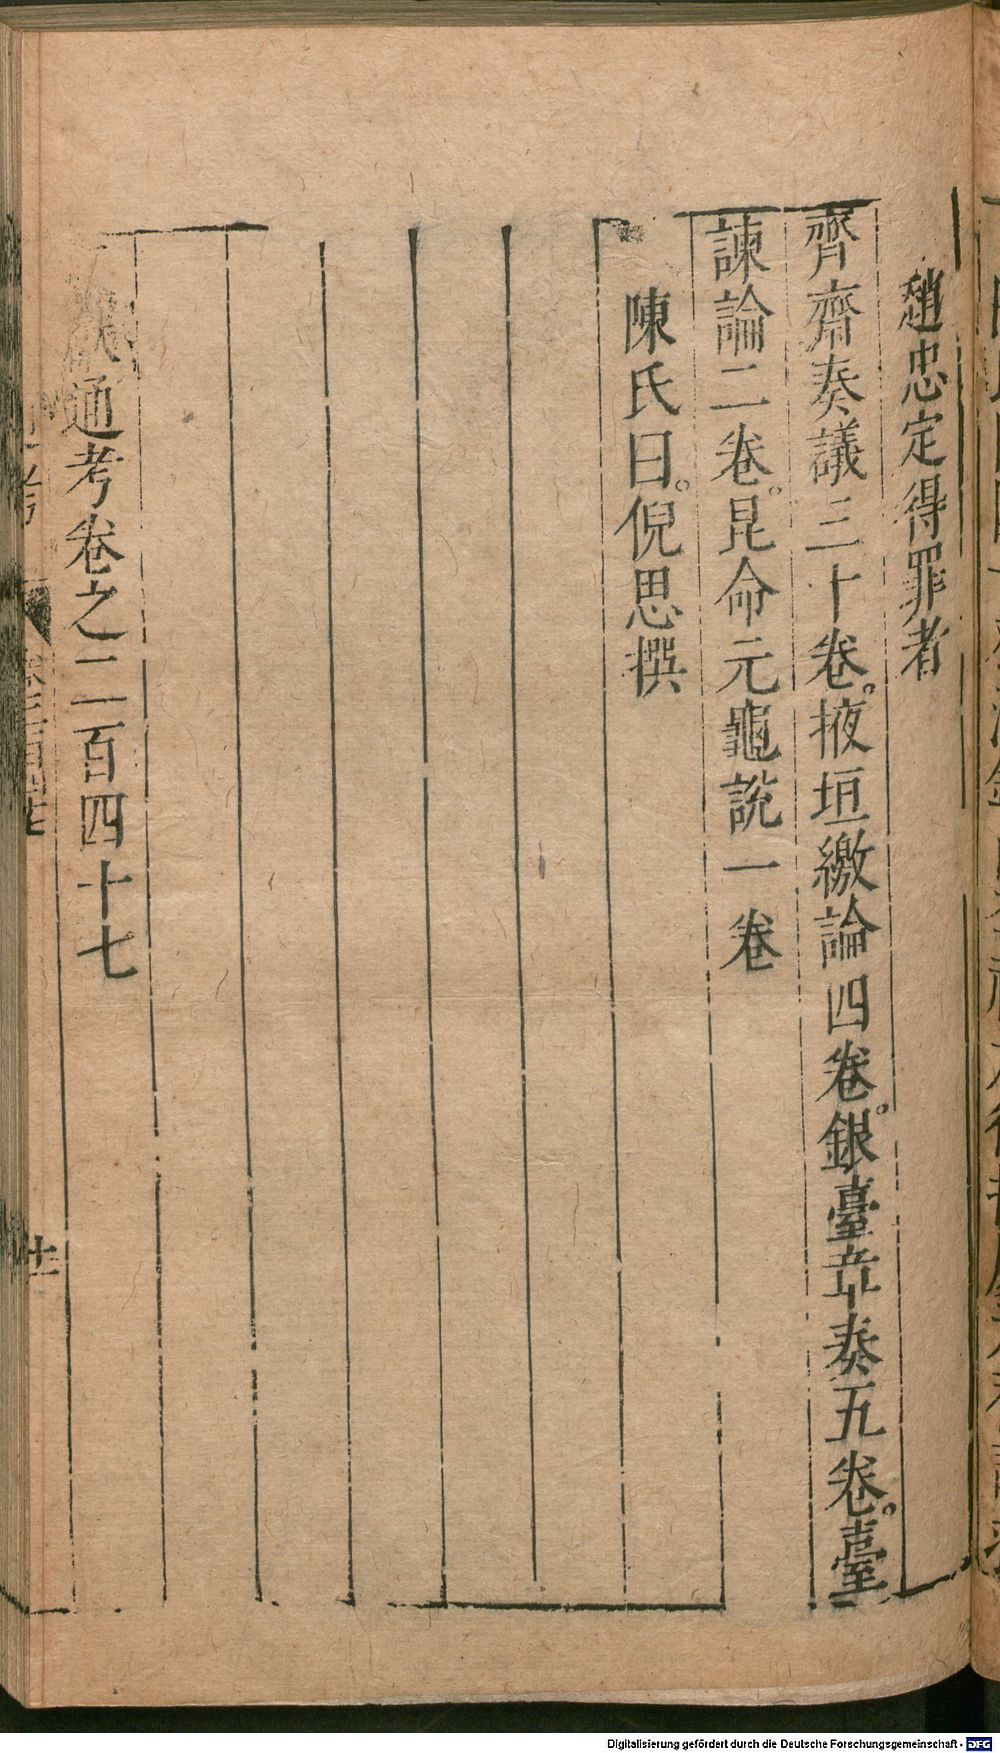 趙忠定得罪者
齊齋奏議三十卷。掖垣繳論四卷。銀臺章奏五卷。臺
諫論二卷。昆命元龜說一卷
陳氏曰。倪思撰
通考卷之二百四十七
Digitalisierung gefördert durch die Deutsche Forschungsgemeinschaft - DFG